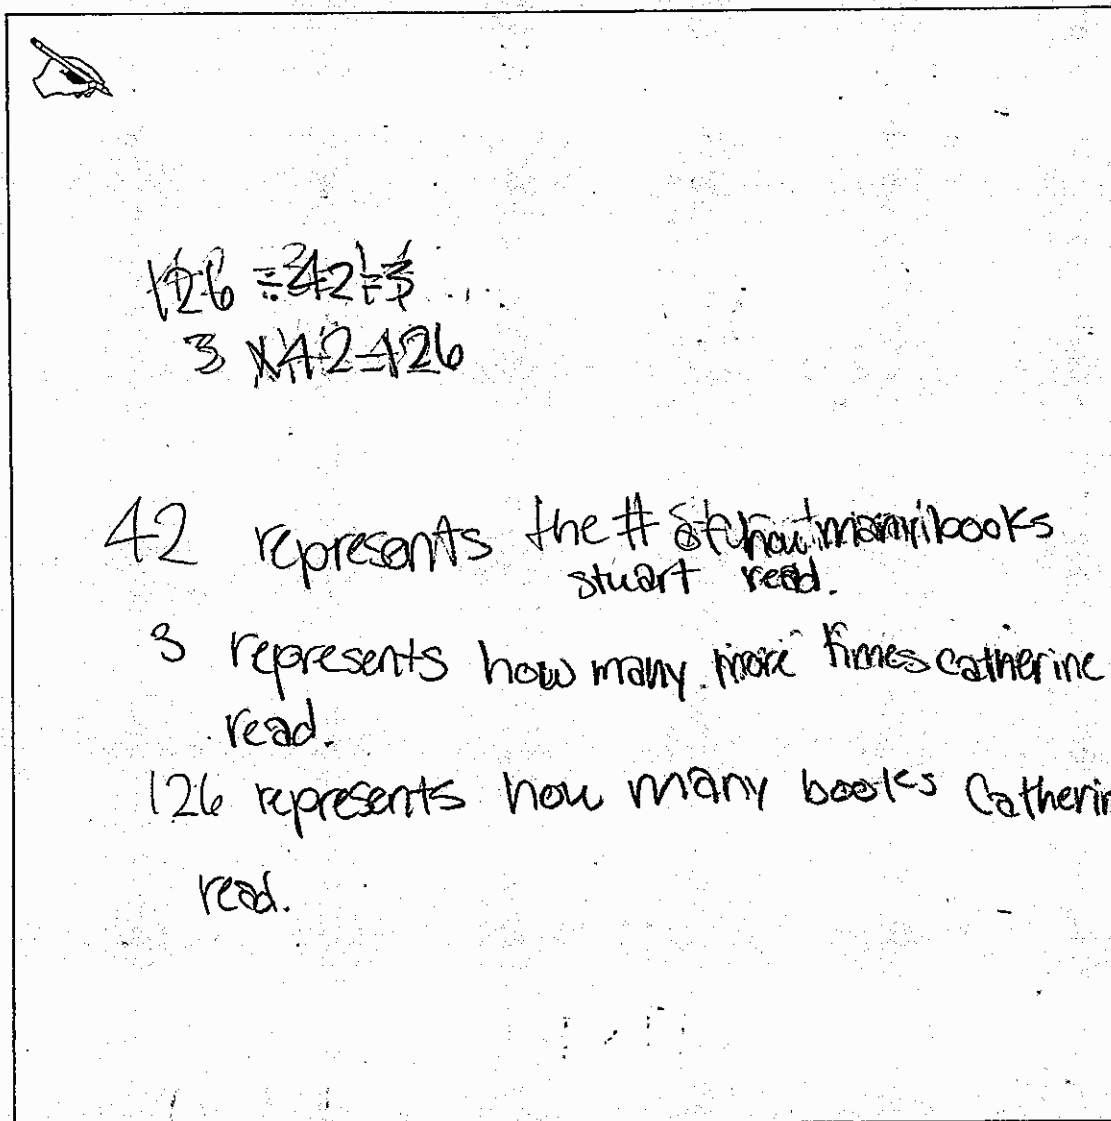 126 ÷ 42 = 3
3 x 42 = 126
42 represents the # how many books
stuart read.
3 represents how many more times catherine
read.
126 represents how many books Catherin
read.